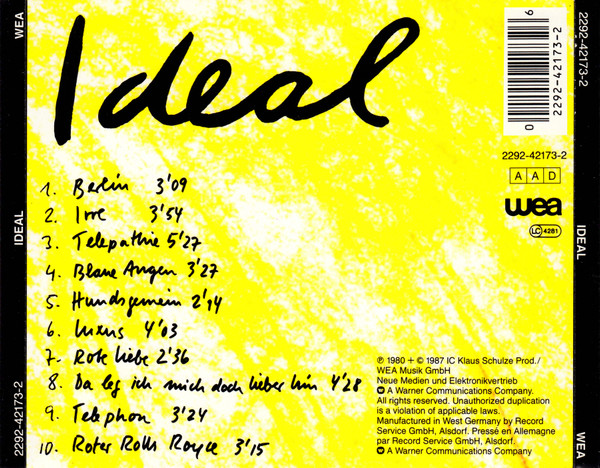 Ideal
1. Berlin 3'09
2. Irre 3'54
3. Telepathie 5'27
4. Blaue Augen 3'27
5. Hundsgemein 2'14
6. Luxus 4'03
7. Rote Liebe 2'36
8. Da leg ich mich doch lieber hin 4'28
9. Telephon 3'24
10. Roter Rolls Royce 3'15
WEA
IDEAL
2292-42173-2
6
0 2292-42173-2
2292-42173-2
A A D
wea
LC 4281
℗ 1980 + © 1987 IC Klaus Schulze Prod./
WEA Musik GmbH
Neue Medien und Elektronikvertrieb
A Warner Communications Company.
All rights reserved. Unauthorized duplication
is a violation of applicable laws.
Manufactured in West Germany by Record
Service GmbH, Alsdorf. Pressé en Allemagne
par Record Service GmbH, Alsdorf.
A Warner Communications Company
2292-42173-2
IDEAL
WEA